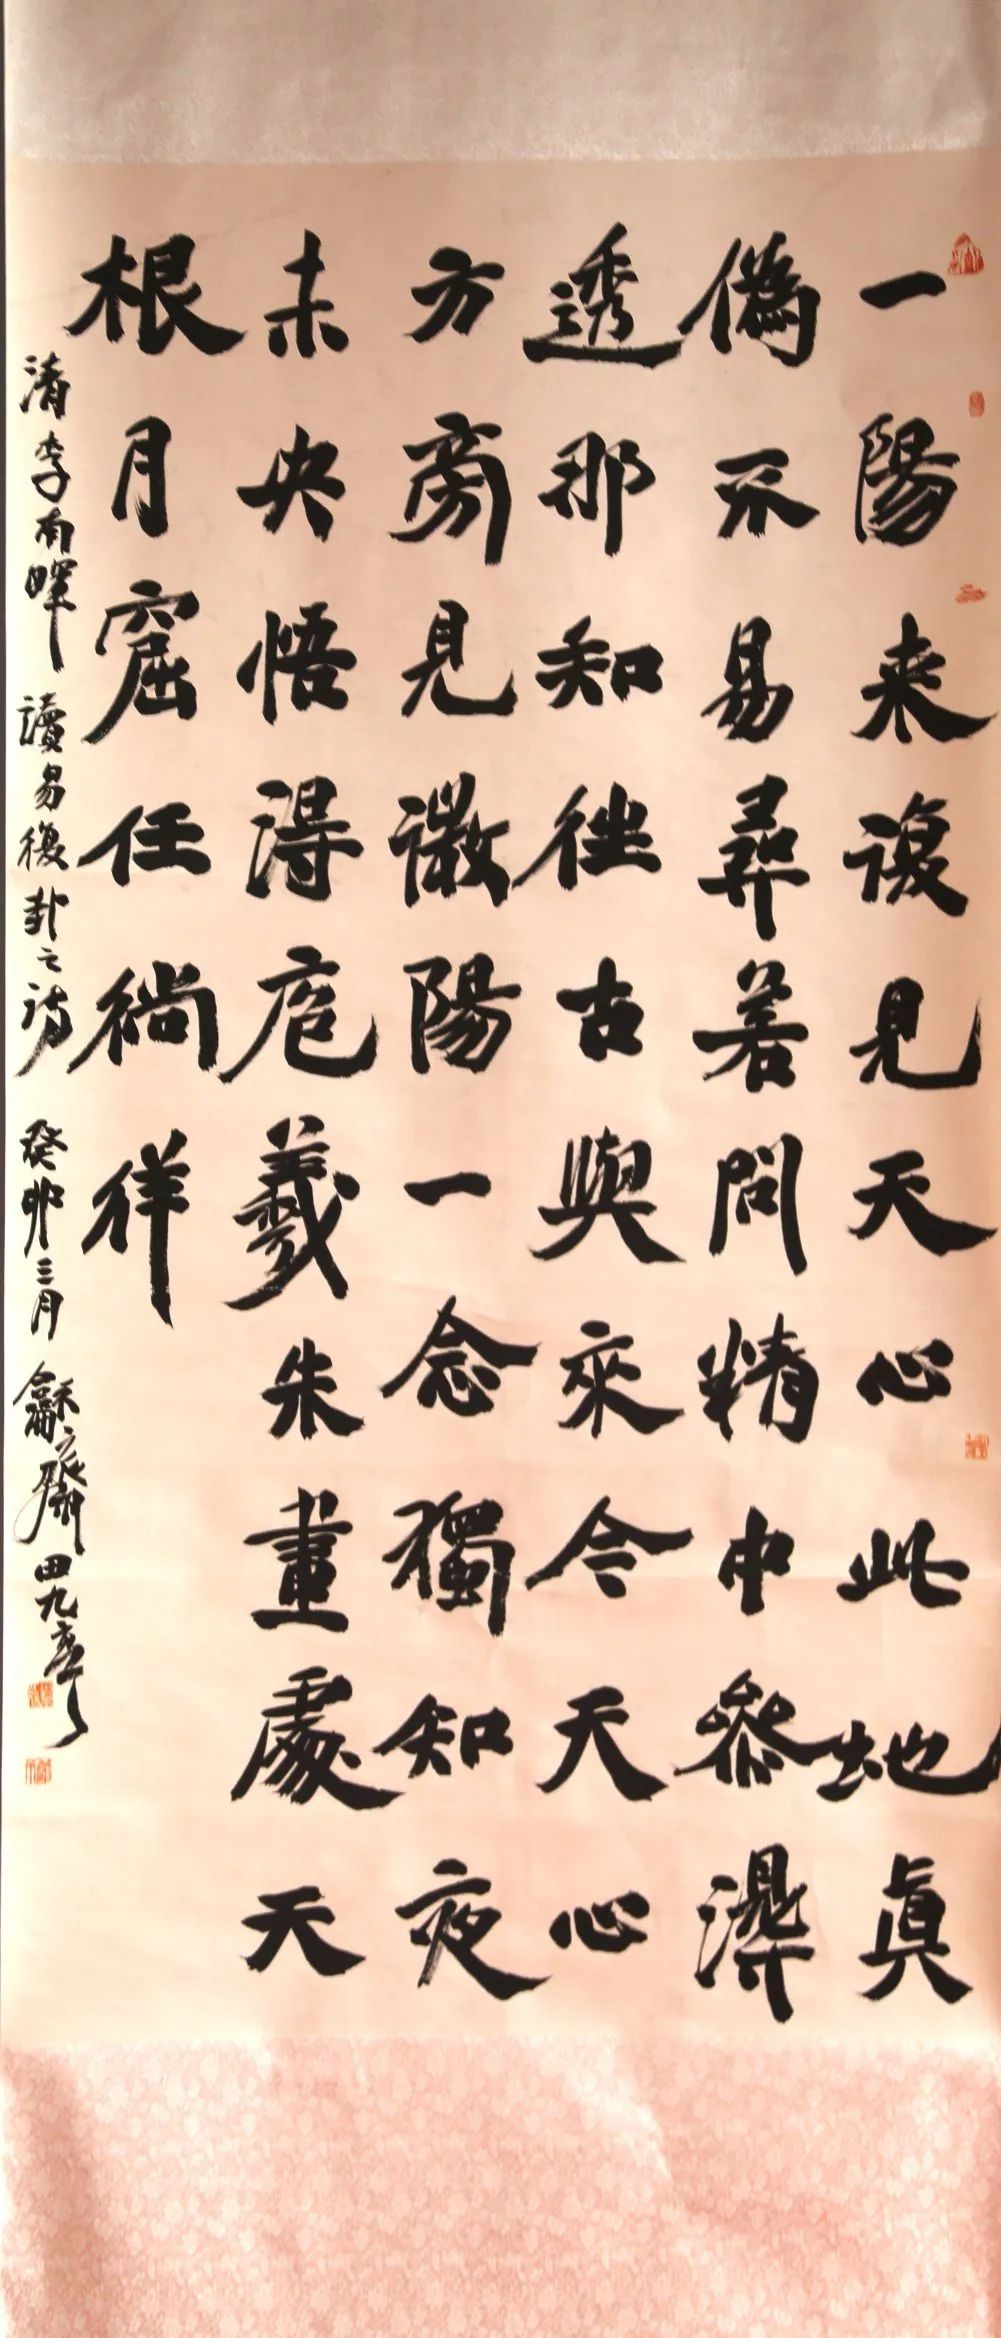 一陽来復見天心此地眞
僞不易尋若問精中參深
透那知徃古與來今天心
方旁見微陽一念獨知夜
未央悟得庖羲朱畫處天
根月窟任徜徉
清李南暉讀易復卦之詩 癸卯三月 龢之齋田九亭